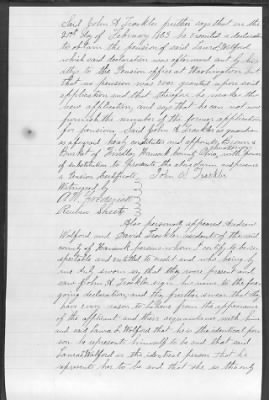 Said John A Treckler further says that on the
21st day of February 1885 he executed a declaration
to obtain the pension of said Laura Wolford
which said declaration was afterward sent by
to the Pension office at Washington but
that no pension was ever granted upon said
application and that therefore he makes this
new application, and says that he can not now
furnish the number of the former application
for pension. Said John A Treckler as guardian
as aforesaid hereby constitutes and appoints Brown &
Bunker of Findley Hancock County Ohio, with power
of substitution to prosecute the above claim and receive
a Pension Certificate. John A Treckler
Witnessed by
Reuben Sheets
Also personally appeared Andrew
Wolford and David Treckler residents of the said
county of Hancock persons whom I certify to be re-
spectable and entitled to credit and who being by
me duly sworn say that they were present and
saw John A Treckler sign his name to the fore-
going declaration, and they further swear that they
have every reason to believe from the appearance
of the applicant and their acquaintance with him
and said Laura L Wolford that he is the identical per-
son he represents himself to be and that said
Laura Wolford is the identical person that he
represents her to be and that she is the only